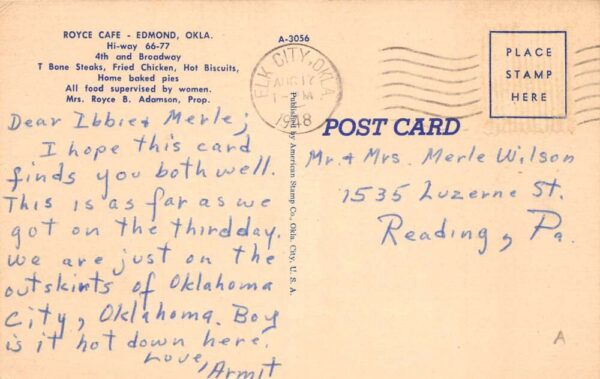 ROYCE CAFE - EDMOND, OKLA.
Hi-way 66-77
4th and Broadway
T Bone Steaks, Fried Chicken, Hot Biscuits,
Home baked pies
All food supervised by women.
Mrs. Royce B. Adamson, Prop.
Dear Ibbie & Merle;
I hope this card
finds you both well.
This is as far as we
got on the third day.
We are just on the
outskirts of Oklahoma
City, Oklahoma. Boy
is it hot down here.
Love,
Armit
A-3056
Published by American Stamp Co., Okla. City, U. S. A.
ELK CITY, OKLA.
AUG 17
M
1948
PLACE
STAMP
HERE
POST CARD
Mr. & Mrs. Merle Wilson
1535 Luzerne St.
Reading, Pa.
A